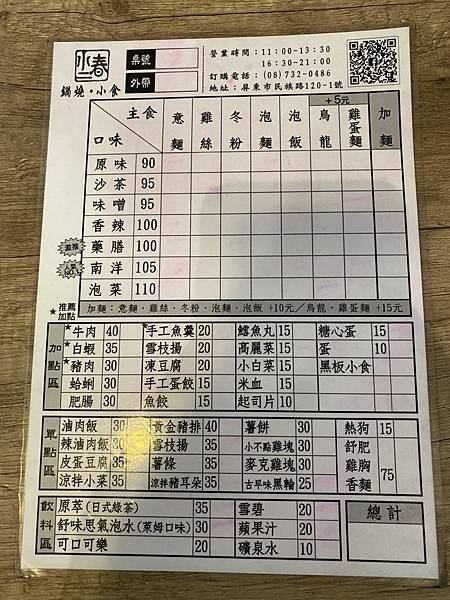 小春
鍋燒·小食
桌號
外帶
營業時間：11:00-13:30
16:30-21:00
訂購電話：(08)732-0486
地址：屏東市民族路120-1號
+5元
主食
口味
意麵
雞絲
冬粉
泡麵
泡飯
烏龍
雞蛋麵
加麵
原味 90
沙茶 95
味噌 95
香辣 100
藥膳 100
南洋 105
泡菜 110
★推薦加點
加麵：意麵·雞絲·冬粉·泡麵·泡飯 +10元／烏龍·雞蛋麵 +15元
加點區
★牛肉 40 ★手工魚羹 20 鱈魚丸 15 糖心蛋 15
★白蝦 35 雪枝揚 20 高麗菜 15 蛋 10
★豬肉 30 凍豆腐 20 小白菜 15 黑板小食
蛤蜊 30 手工蛋餃 15 米血 15
肥腸 30 魚餃 15 起司片 10
單點區
滷肉飯 30 黃金豬排 40 薯餅 30 熱狗 15
辣滷肉飯 30 雪枝揚 35 小不點雞塊 30 舒肥雞胸香麵 75
皮蛋豆腐 35 薯條 35 麥克雞塊 30
涼拌小菜 35 涼拌豬耳朵 35 古早味黑輪 25
飲料區
原萃(日式綠茶) 35 雪碧 20 總計
舒味思氣泡水(萊姆口味) 30 蘋果汁 20
可口可樂 20 礦泉水 10